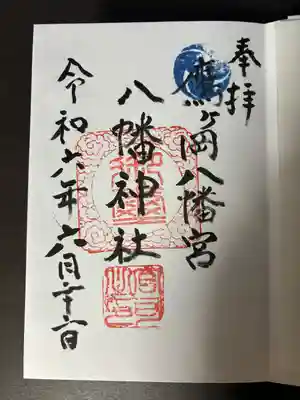 奉拝
鷹ヶ岡八幡宮
八幡神社
令和六年六月二十一日